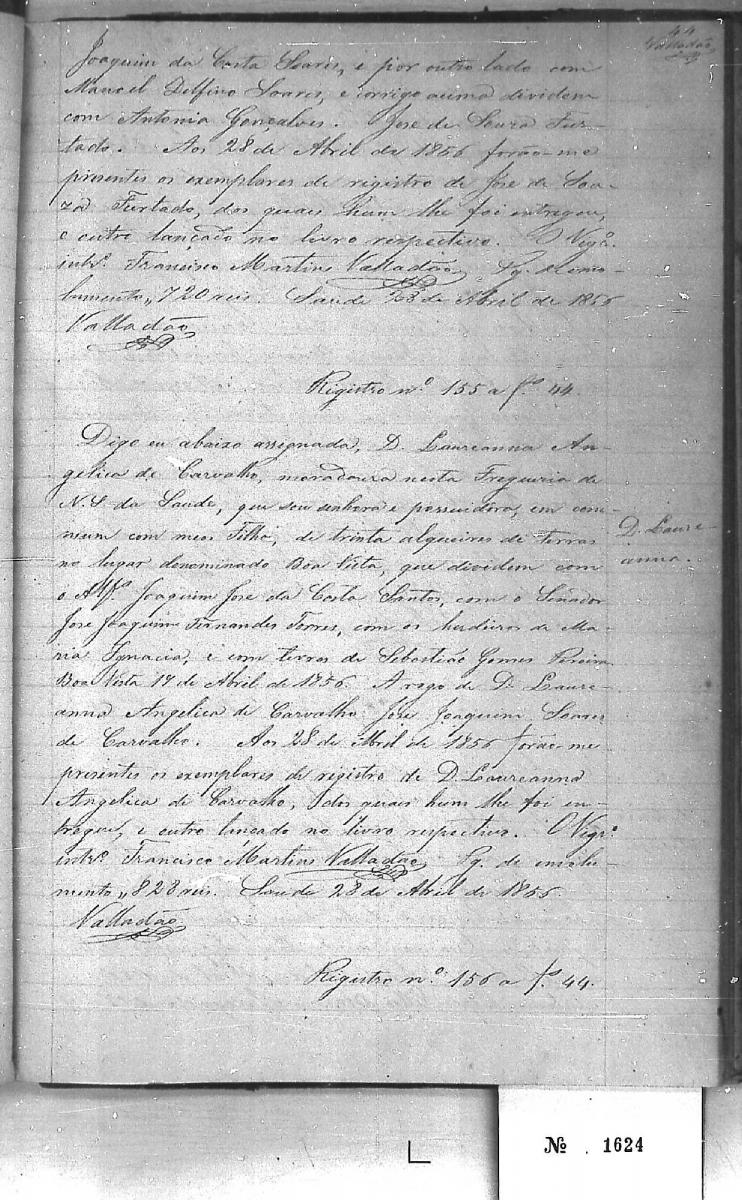 44
Valladão
Joaquim da Costa Soares, e por outro lado com
Manoel Delfino Soares, e corrigo acima dividem
com Antonia Gonçalves. José de Souza Fur-
tado. Aos 28 de Abril de 1856 forão-me
presentes os exemplares de registro de José de Sou-
za Furtado, dos quais hum lhe foi entregou,
e outro lançado no livro respectivo. O Vigrº
intrº Francisco Martins Valladão. Pg. de emo-
lumento,, 720 reis. Saude 28 de Abril de 1856
Valladão
Registro nº 155 a fº 44.
Digo eu abaixo assignada, D. Laureanna An-
gelica de Carvalho, moradoura nesta Freguezia de
N. S. da Saude, que sou senhora e possuidora, em com-
mum com meos Filho, de trinta alqueires de terras
no lugar denominado Boa Vista, que dividem com
o Alfs Joaquim José da Costa Santos, com o Señador
José Joaquim Fernandes Torres, com os herdeiros de Ma-
ria Ignacia, e com terras de Sebastião Gomes Pereira
Boa Vista 17 de Abril de 1856. A rogo de D. Laure-
anna Angelica de Carvalho José Joaquim Soares
de Carvalho. Aos 28 de Abril de 1856 forão-me
presentes os exemplares de registro de D. Laureanna
Angelica de Carvalho, dos quais hum lhe foi en-
tregue, e outro lançado no livro respectivo. O Vigrº
intrº Francisco Martins Valladão. Pg. de emolu-
mento,, 828 reis. Saude 28 de Abril de 1856.
Valladão
D. Laure-
anna.
Registro nº 156 a fº 44.
Nº 1624